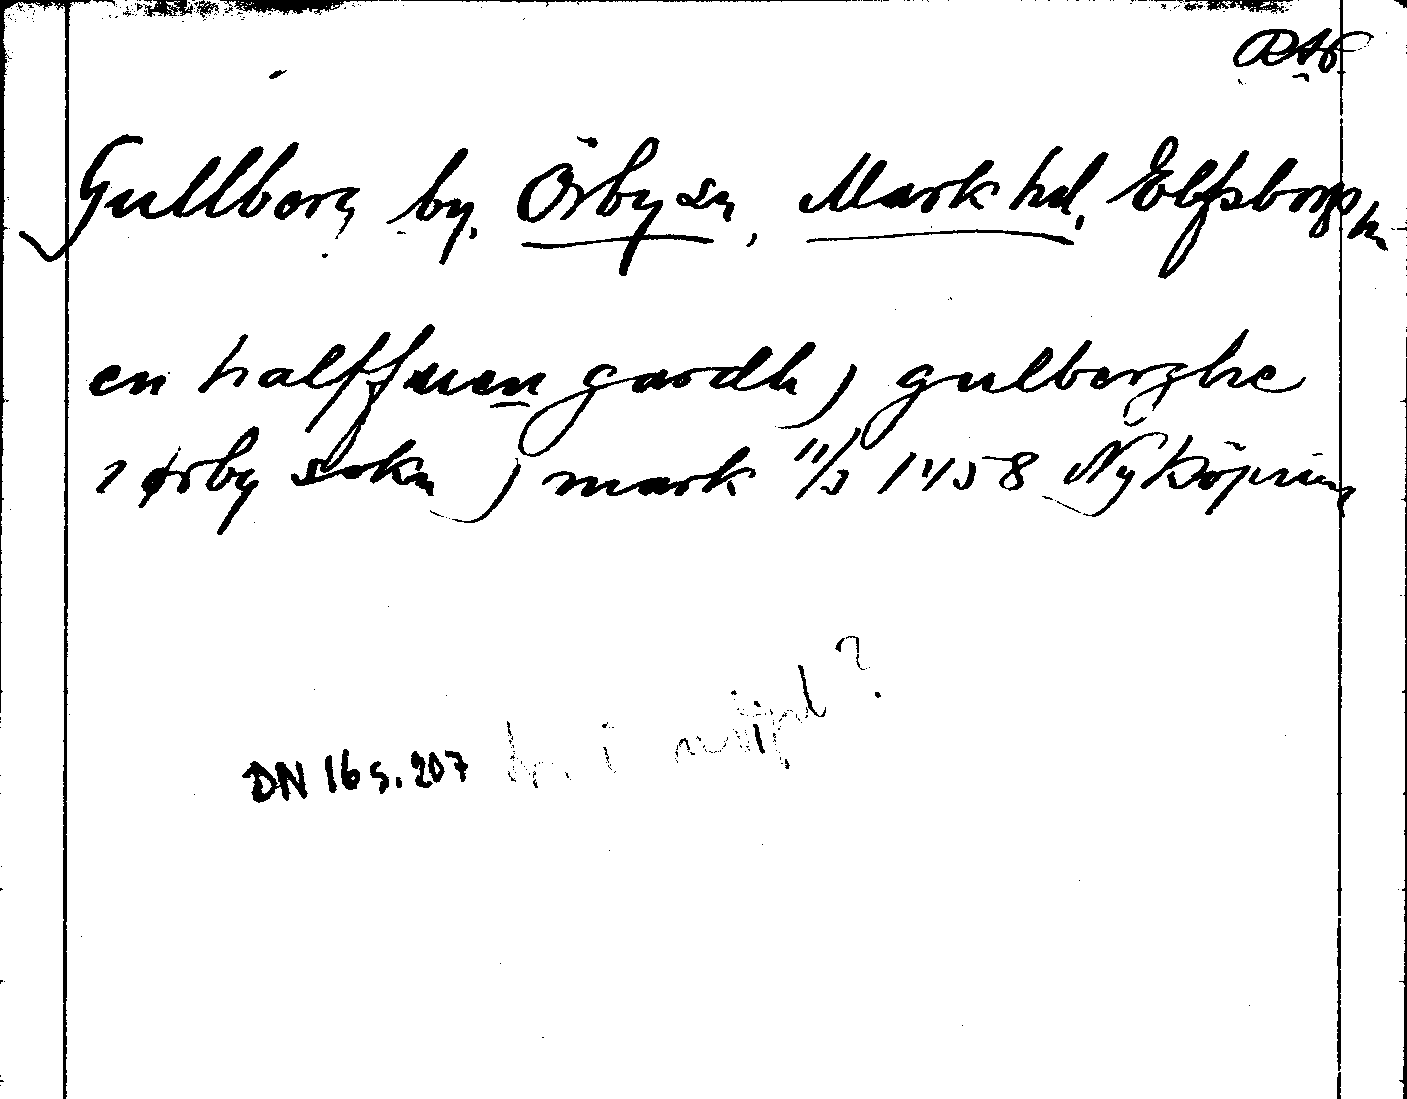 RAP
Gullberg by, Örby sn, Mark hd, Elfsborgs ln
en halffuen gardh j gulberghe
i ørby sokn j mark 11/3 1458 Nyköping
DN 16 s. 207